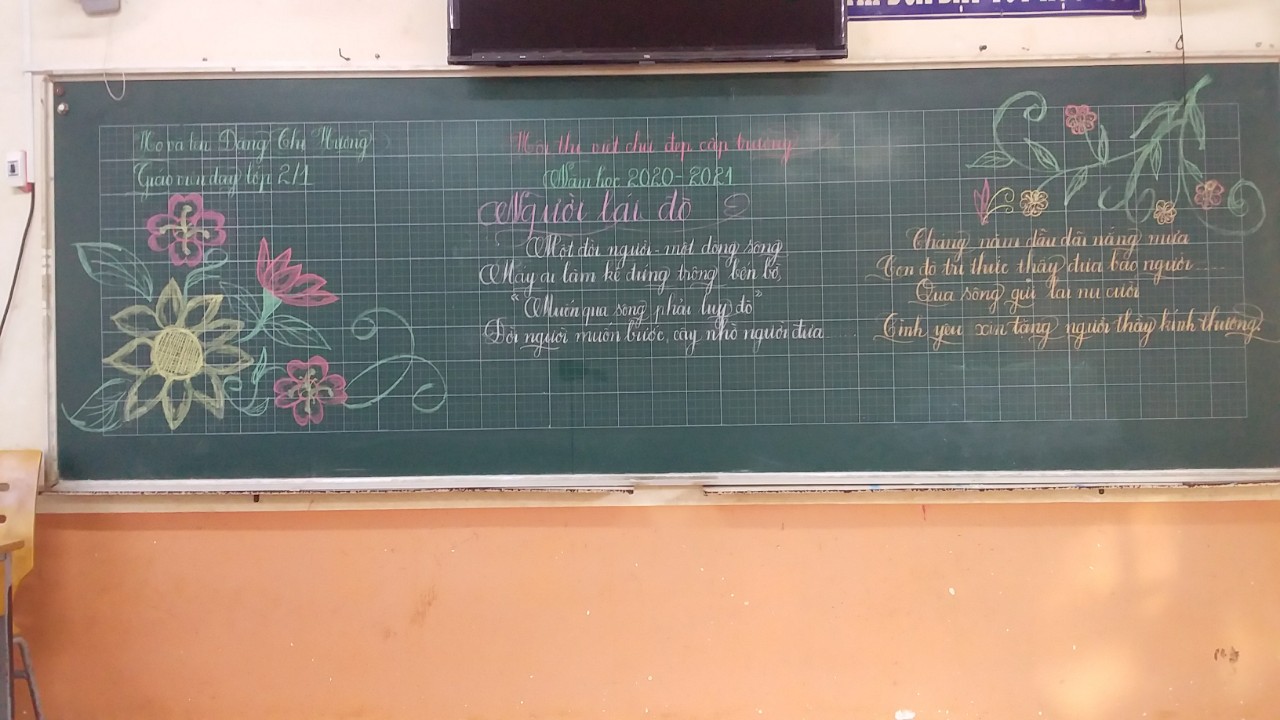 Họ và tên Đặng Thị Hường
Giáo viên dạy lớp 2/1
Hội thi viết chữ đẹp cấp trường
Năm học 2020 - 2021
Người lái đò
Một đời người - một dòng sông
Mấy ai làm kẻ đứng trông bến bờ,
"Muốn qua sông phải lụy đò"
Đời người muôn bước cậy nhờ người đưa
Tháng năm dầu dãi nắng mưa
Con đò trí thức thầy đưa bao người.....
Qua sông gửi lại nụ cười
Tình yêu xin tặng người thầy kính thương.